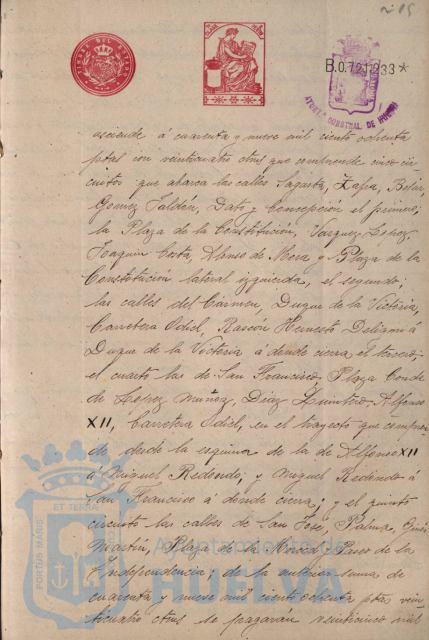 nº 15
TIMBRE DEL ESTADO
B.0.721,933*
AYUNTº CONSTNAL. DE HUELVA
asciende á cuarenta y nueve mil ciento ochenta
ptas con veinticuatro ctms que comprende cinco cir-
cuitos que abarca las calles Sagasta, Zafra, Béjar,
Gomez Jaldón, Dato y Concepción el primero,
la Plaza de la Constitución, Vazquez Lopez,
Joaquin Costa, Alonso de Mora y Plaza de la
Constitución lateral izquierda, el segundo;
las calles del Carmen, Duque de la Victoria,
Carretera Odiel, Rascón Hernesto Deligni á
Duque de la Victoria á donde cierra el tercero
el cuarto las de San Francisco, Plaza Conde
de Lopez Muñoz, Diaz Quintero, Alfonso
XII, Carretera Odiel, en el trayecto que compren-
de desde la esquina de la de Alfonso XII
á Miguel Redondo; y Miguel Redondo á
San Francisco á donde cierra; y el quinto
circuito las calles de San José, Palma, Ginés
Martín, Plaza de la Merced, Paseo de la
Independencia; de la anterior suma de
cuarenta y nueve mil ciento ochenta ptas vein-
ticuatro ctms se pagarán veinticinco mil
PORTUS MARIS
ET TERRAE
Ayuntamiento de
HUELVA